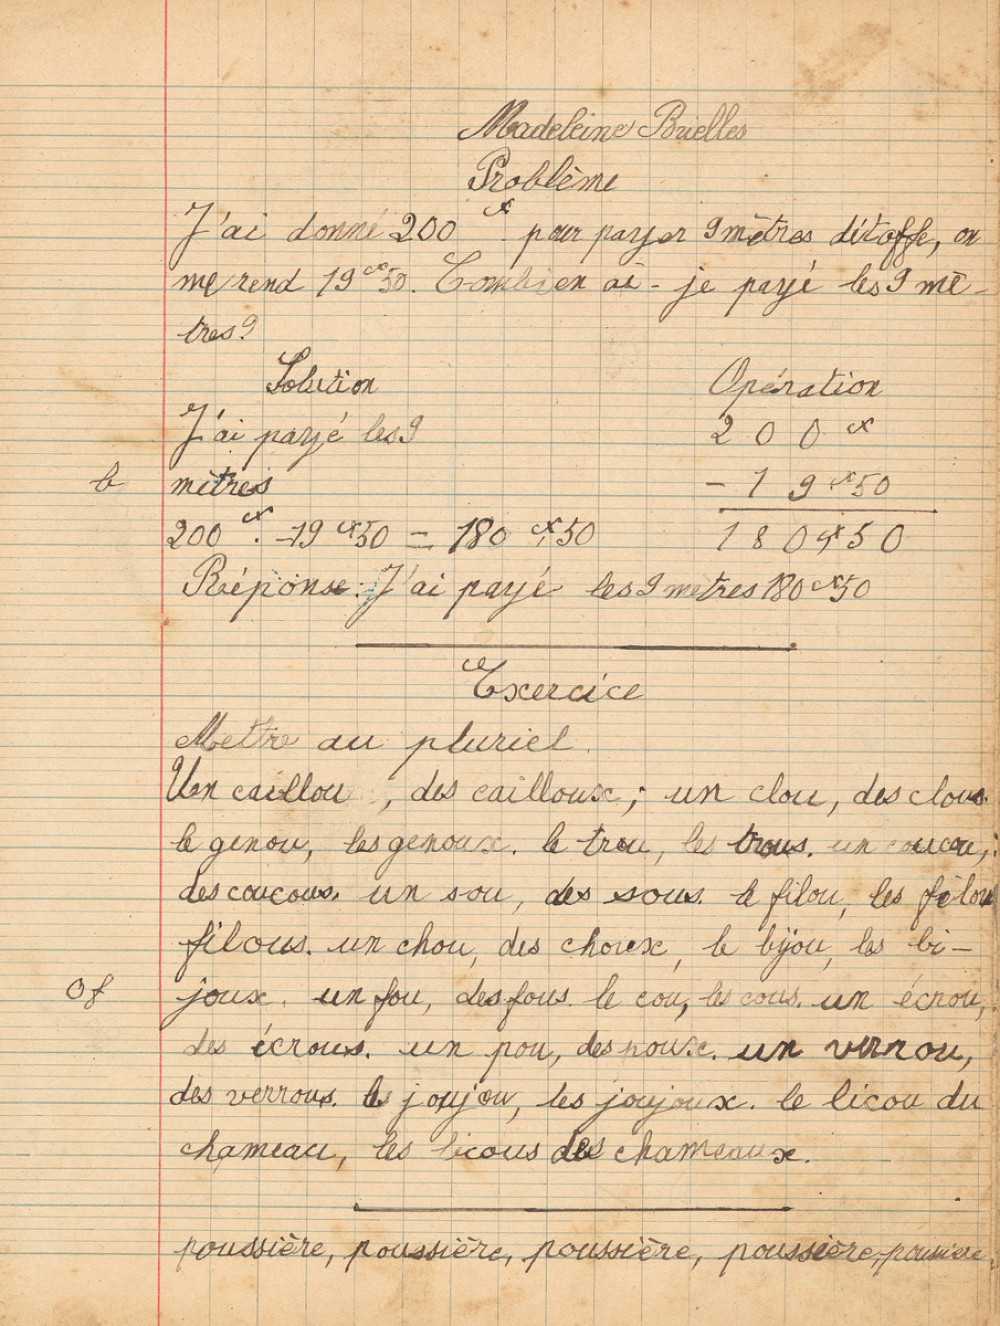 Madeleine Brielles
Problème
J'ai donné 200 fr pour payer 9 mètres d'étoffe, on
me rend 19 fr 50. Combien ai-je payé les 9 mè-
tres?
Solution Opération
J'ai payé les 9 200 fr
b mètres - 19 fr 50
200 fr. - 19 fr 50 = 180 fr, 50 180 fr 50
Réponse: J'ai payé les 9 mètres 180 fr 50
Exercice
Mettre au pluriel.
Un caillou, des cailloux; un clou, des clous
le genou, les genoux. le trou, les trous. un coucou;
des coucous. un sou, des sous. le filou, les filou
filous. un chou, des choux, le bijou, les bi-
0 f joux. un fou, des fous. le cou, les cous. un écrou,
des écrous. un pou, des poux. un verrou,
des verrous. le joujou, les joujoux. le licou du
chameau, les licous des chameaux.
poussière, poussière, poussière, poussière, poussière